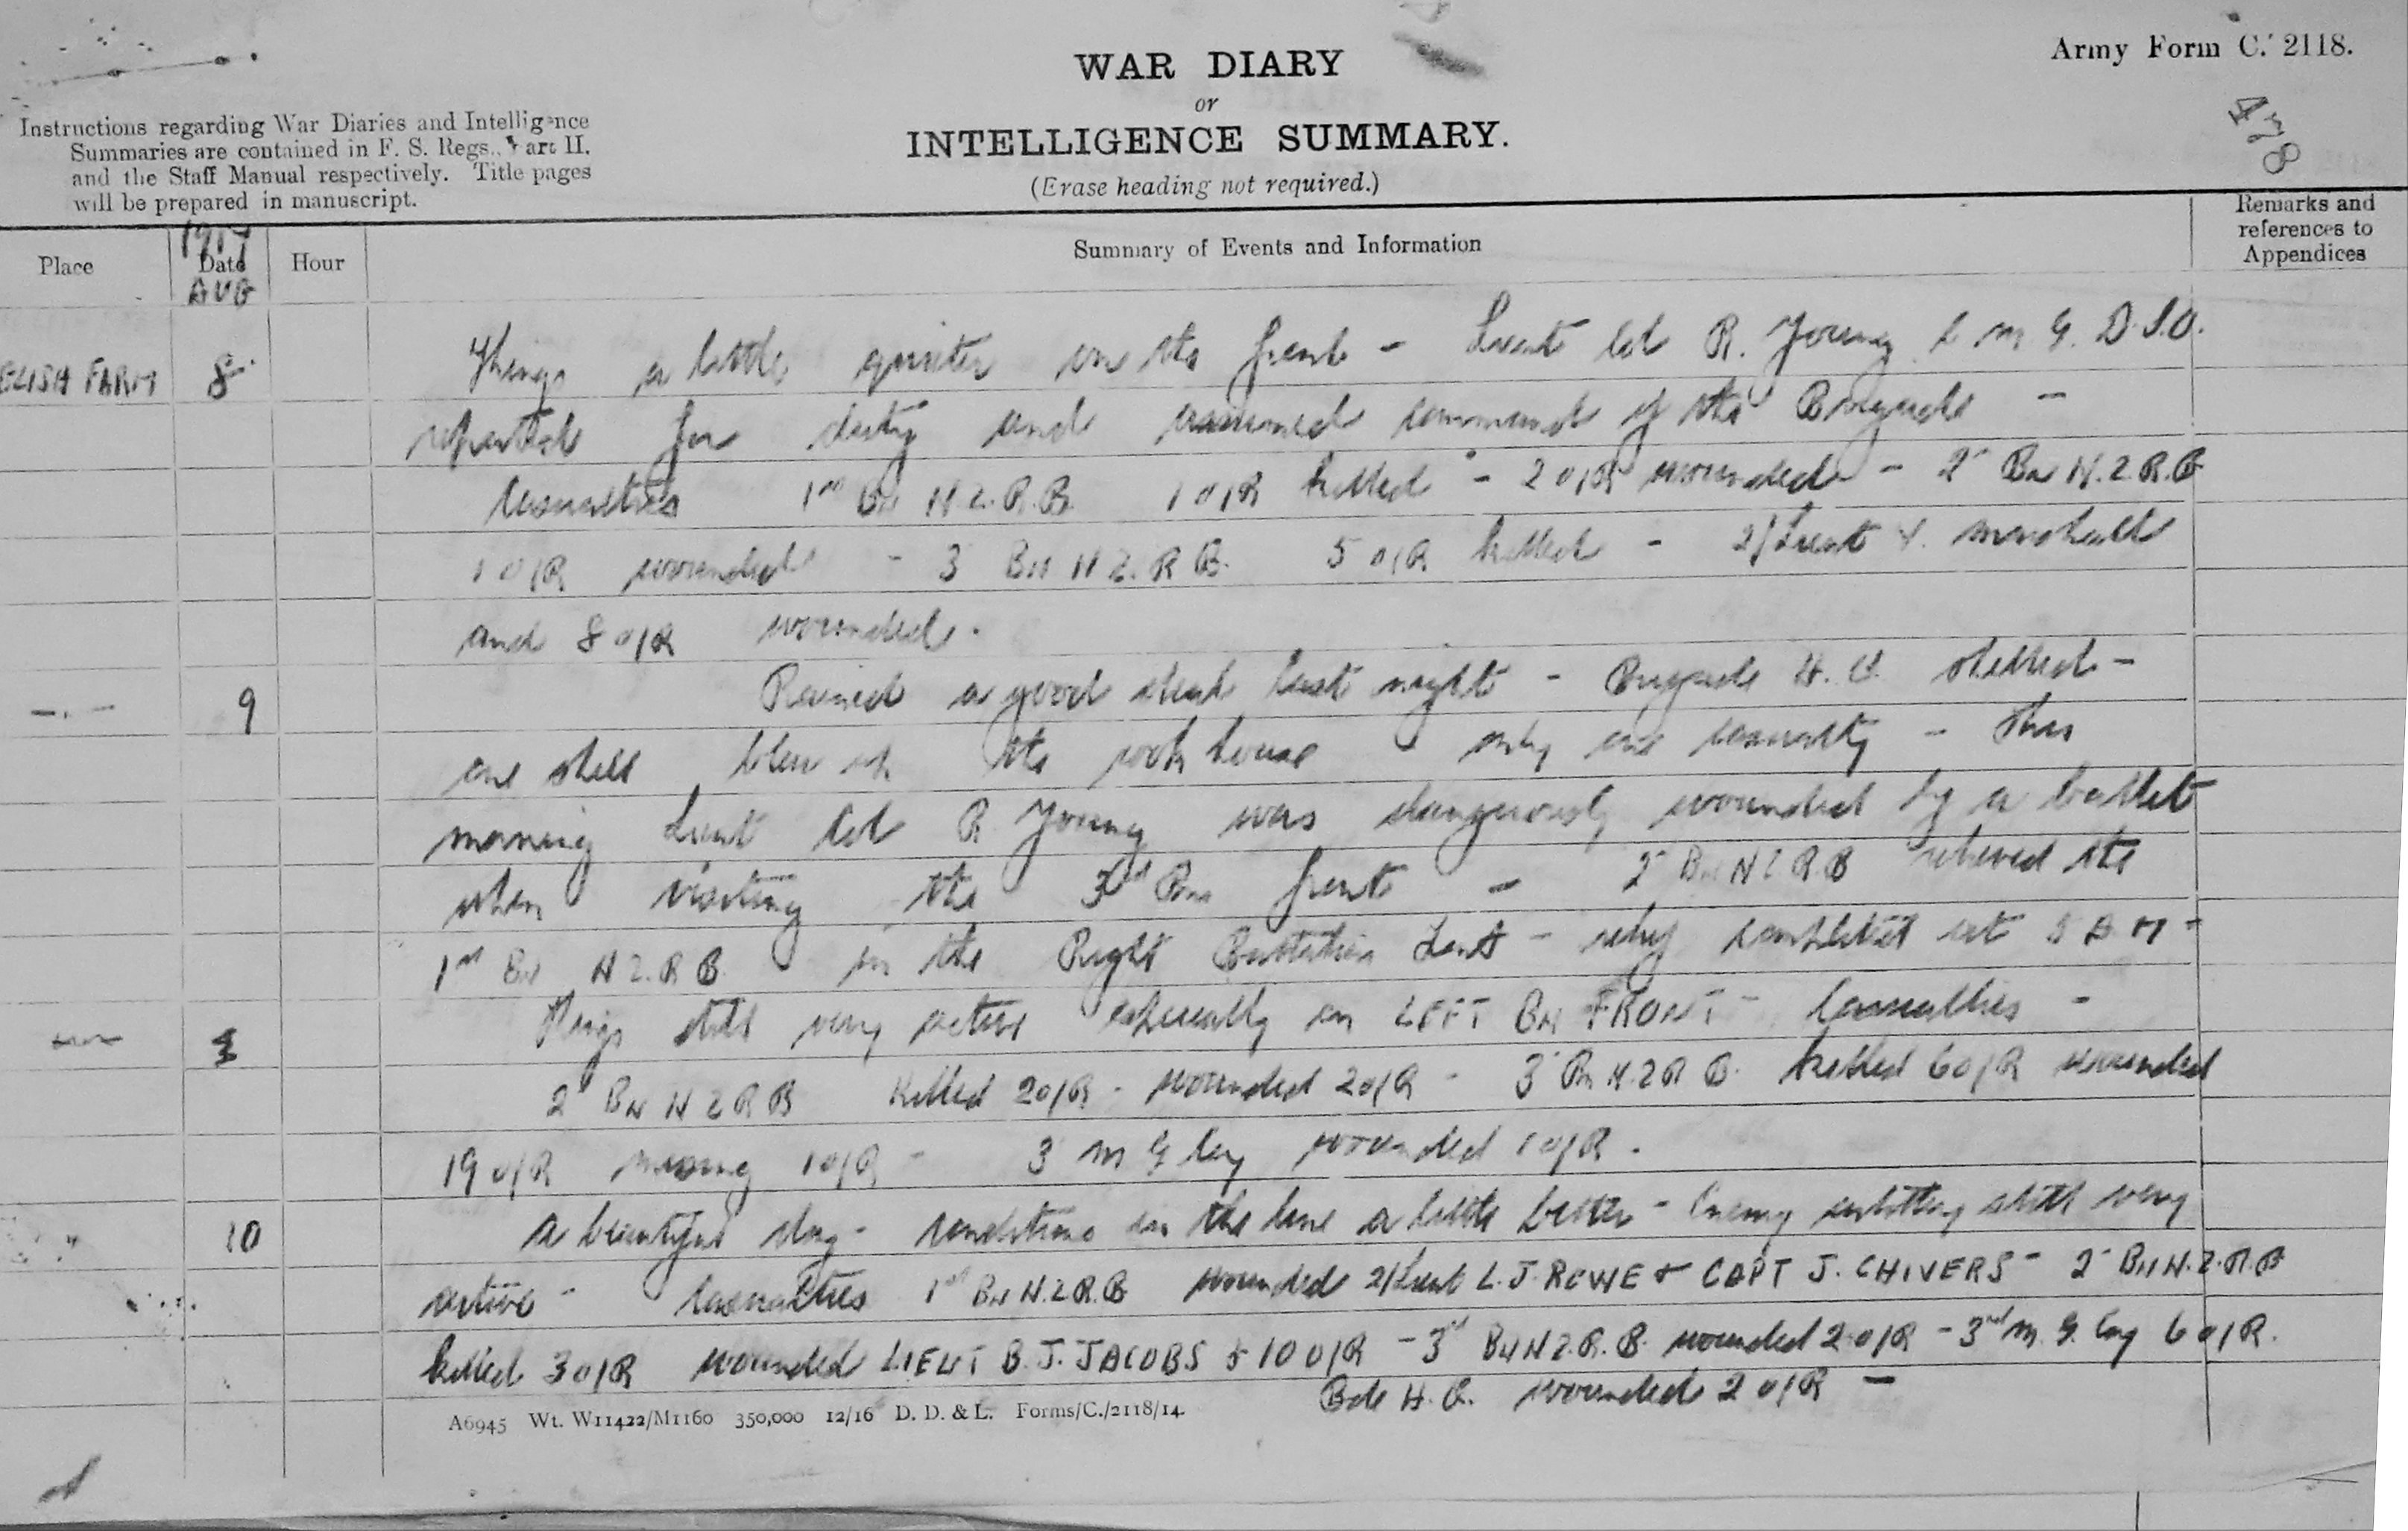 Army Form C. 2118.
WAR DIARY
or
INTELLIGENCE SUMMARY.
(Erase heading not required.)
478
Instructions regarding War Diaries and Intelligence
Summaries are contained in F. S. Regs., Part II.
and the Staff Manual respectively. Title pages
will be prepared in manuscript.
Place
1917
Date
AUG
Hour
Summary of Events and Information
Remarks and
references to
Appendices
ELISH FARM 8 Things a little quieter on the front - Lieut Col R. Young C M G. D.S.O.
reported for duty and assumed command of the Brigade -
Casualties 1st Bn N.Z.R.B. 1 O/R killed - 2 O/R wounded - 2 Bn N.Z.R.B
1 O/R wounded - 3 Bn N Z. R B. 5 O/R killed - 2/Lieut Marshall
and 8 O/R wounded.
9 Rained a good deal last night - Brigade H.Q. shelled -
one shell blew up the cook house only one casualty - This
morning Lieut Col R Young was dangerously wounded by a bullet
when visiting the 3rd Bn front - 2 Bn N Z R.B relieved the
1st Bn N Z.R B. in the Right Battalion Sect - complete at 3 A M -
Things still very active especially on LEFT BN FRONT - Casualties -
2 BN N Z R B killed 2 O/R - wounded 2 O/R - 3 Bn N.Z R B. killed 6 O/R wounded
19 O/R missing 1 O/R - 3 M G Coy wounded 1 O/R.
" 10 A beautiful day - conditions in the line a little better - Enemy artillery still very
active - Casualties 1st Bn N.Z.R.B wounded 2/Lieut L. J. ROWE & CAPT J. CHIVERS - 2 Bn N.Z.R.B
killed 3 O/R wounded LIEUT B. J. JACOBS & 10 O/R - 3rd Bn N Z.R.B. wounded 2 O/R - 3rd M. G. Coy 6 O/R.
Bde H.Q. wounded 2 O/R -
A6945 Wt. W11422/M1160 350,000 12/16 D. D. & L. Forms/C./2118/14.